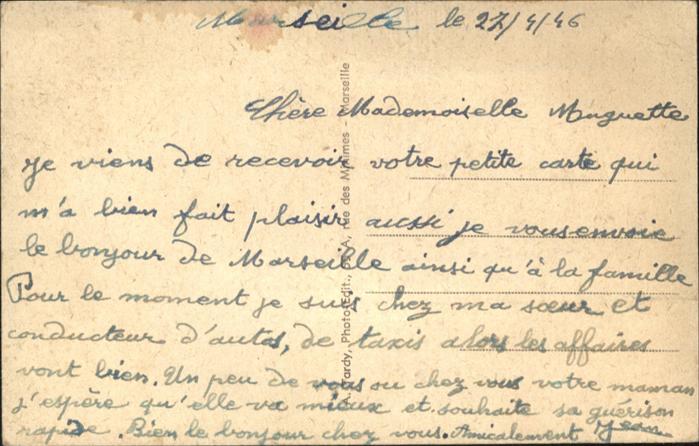 Marseille le 27/4/46
Chère Mademoiselle Muguette
Je viens de recevoir votre petite carte qui
m'a bien fait plaisir aussi je vous envoie
le bonjour de Marseille ainsi qu'à la famille
Pour le moment je suis chez ma sœur et
conducteur d'autos, de taxis alors les affaires
vont bien. Un peu de vous ou chez vous votre maman
j'espère qu'elle va mieux et souhaite sa guérison
rapide. Bien le bonjour chez vous. Amicalement Jean
A. Tardy, Photo-Edit. rue des Minimes - Marseille